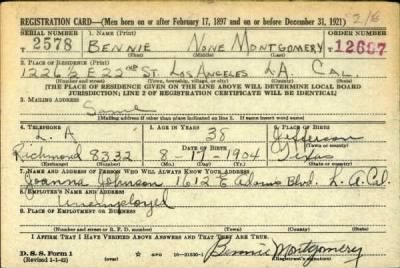 REGISTRATION CARD—(Men born on or after February 17, 1897 and on or before December 31, 1921) 216
SERIAL NUMBER 1. NAME (Print) ORDER NUMBER
T 2578 BENNIE NONE MONTGOMERY 12687
2. PLACE OF RESIDENCE (Print)
1226½ E 22nd ST. LOS ANGELES L.A. CAL
(Number and street) (Town, township, village, or city) (County) (State)
[THE PLACE OF RESIDENCE GIVEN ON THE LINE ABOVE WILL DETERMINE LOCAL BOARD
JURISDICTION; LINE 2 OF REGISTRATION CERTIFICATE WILL BE IDENTICAL]
3. MAILING ADDRESS
Same
[Mailing address if other than place indicated on line 2. If same insert word same]
4. TELEPHONE 5. AGE IN YEARS 6. PLACE OF BIRTH
L. A 38 Jefferson
DATE OF BIRTH (Town or county)
Richmond 8332 8-17-1904 Texas
(Exchange) (Number) (Mo.) (Day) (Yr.) (State or country)
7. NAME AND ADDRESS OF PERSON WHO WILL ALWAYS KNOW YOUR ADDRESS
Joanna Johnson 1612 E Adams Blvd. L.A. Cal.
8. EMPLOYER'S NAME AND ADDRESS
Unemployed
9. PLACE OF EMPLOYMENT OR BUSINESS
(Number and street or R. F. D. number) (Town) (County) (State)
I AFFIRM THAT I HAVE VERIFIED ABOVE ANSWERS AND THAT THEY ARE TRUE.
D. S. S. Form 1 GPO Bennie Montgomery
(Revised 1-1-42) (Registrant's signature)